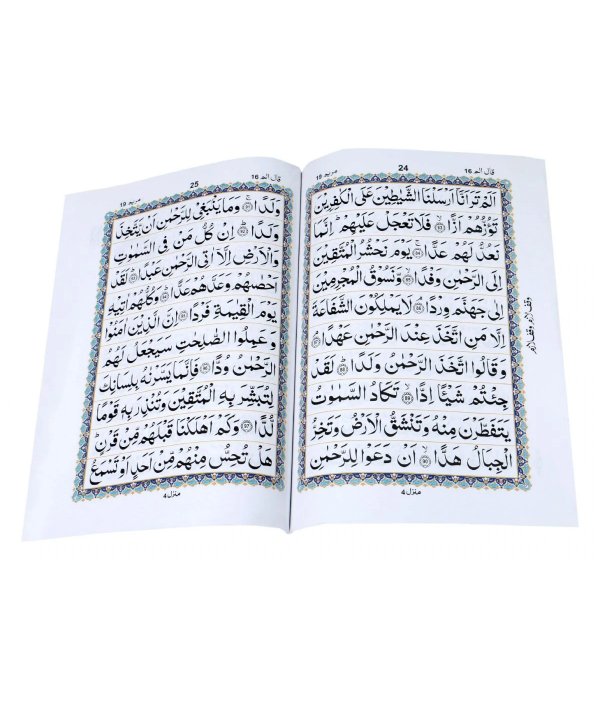 قال الم ١٦
24
مريم ١٩
اَلَمْ تَرَ اَنَّاۤ اَرْسَلْنَا الشَّيٰطِيْنَ عَلَى الْكٰفِرِيْنَ
تَؤُزُّهُمْ اَزًّا ﴿83﴾ فَلَا تَعْجَلْ عَلَيْهِمْ ؕ اِنَّمَا
نَعُدُّ لَهُمْ عَدًّا ﴿84﴾ يَوْمَ نَحْشُرُ الْمُتَّقِيْنَ
اِلَى الرَّحْمٰنِ وَفْدًا ﴿85﴾ وَّنَسُوْقُ الْمُجْرِمِيْنَ
اِلٰى جَهَنَّمَ وِرْدًا ﴿86﴾ لَا يَمْلِكُوْنَ الشَّفَاعَةَ
اِلَّا مَنِ اتَّخَذَ عِنْدَ الرَّحْمٰنِ عَهْدًا ﴿87﴾
وَقَالُوا اتَّخَذَ الرَّحْمٰنُ وَلَدًا ﴿88﴾ لَقَدْ
جِئْتُمْ شَيْـًٔا اِدًّا ﴿89﴾ تَكَادُ السَّمٰوٰتُ
يَتَفَطَّرْنَ مِنْهُ وَتَنْشَقُّ الْاَرْضُ وَتَخِرُّ
الْجِبَالُ هَدًّا ﴿90﴾ اَنْ دَعَوْا لِلرَّحْمٰنِ
منزل ٤
قال الم ١٦
25
مريم ١٩
وَلَدًا ﴿91﴾ وَمَا يَنْۢبَغِيْ لِلرَّحْمٰنِ اَنْ يَّتَّخِذَ
وَلَدًا ﴿92﴾ اِنْ كُلُّ مَنْ فِى السَّمٰوٰتِ
وَالْاَرْضِ اِلَّاۤ اٰتِى الرَّحْمٰنِ عَبْدًا ﴿93﴾ لَقَدْ
اَحْصٰهُمْ وَعَدَّهُمْ عَدًّا ﴿94﴾ وَكُلُّهُمْ اٰتِيْهِ
يَوْمَ الْقِيٰمَةِ فَرْدًا ﴿95﴾ اِنَّ الَّذِيْنَ اٰمَنُوْا
وَعَمِلُوا الصّٰلِحٰتِ سَيَجْعَلُ لَهُمُ
الرَّحْمٰنُ وُدًّا ﴿96﴾ فَاِنَّمَا يَسَّرْنٰهُ بِلِسَانِكَ
لِتُبَشِّرَ بِهِ الْمُتَّقِيْنَ وَتُنْذِرَ بِهٖ قَوْمًا
لُّدًّا ﴿97﴾ وَكَمْ اَهْلَكْنَا قَبْلَهُمْ مِّنْ قَرْنٍ ؕ
هَلْ تُحِسُّ مِنْهُمْ مِّنْ اَحَدٍ اَوْ تَسْمَعُ
منزل ٤